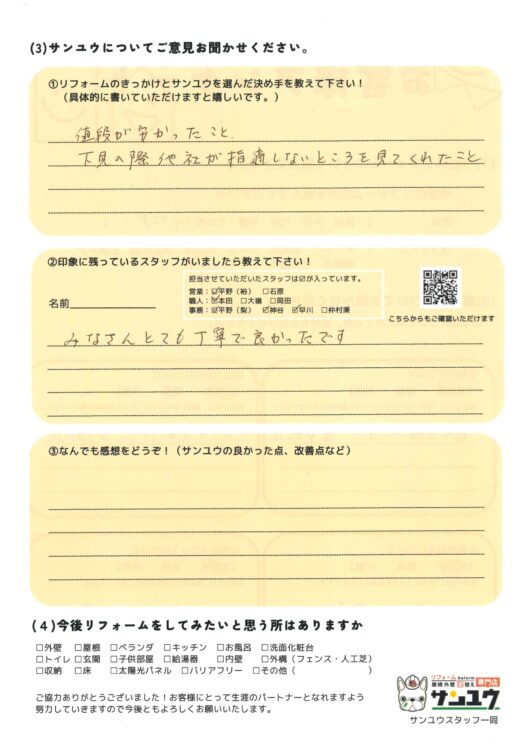 (3)サンユウについてご意見お聞かせください。
①リフォームのきっかけとサンユウを選んだ決め手を教えて下さい！
（具体的に書いていただけますと嬉しいです。）
値段が安かったこと
下見の際他社が指摘しないところを見てくれたこと
②印象に残っているスタッフがいましたら教えて下さい！
担当させていただいたスタッフは☑が入っています。
営業：☑平野（裕）　□石原
職人：☑本田　□大磯　□岡田
名前
事務：☑平野（梨）　☑神谷　☑早川　□仲村渠
こちらからもご確認いただけます
みなさんとても丁寧で良かったです
③なんでも感想をどうぞ！（サンユウの良かった点、改善点など）
(4)今後リフォームをしてみたいと思う所はありますか
□外壁　□屋根　□ベランダ　□キッチン　□お風呂　□洗面化粧台
□トイレ　□玄関　□子供部屋　□給湯器　□内壁　□外構（フェンス・人工芝）
□収納　□床　□太陽光パネル　□バリアフリー　□その他（　　　　　　）
ご協力ありがとうございました！お客様にとって生涯のパートナーとなれますよう
努力していきますので今後ともよろしくお願いいたします。
リフォーム Reform
屋根外壁 葺替え 専門店
サンユウ
サンユウスタッフ一同